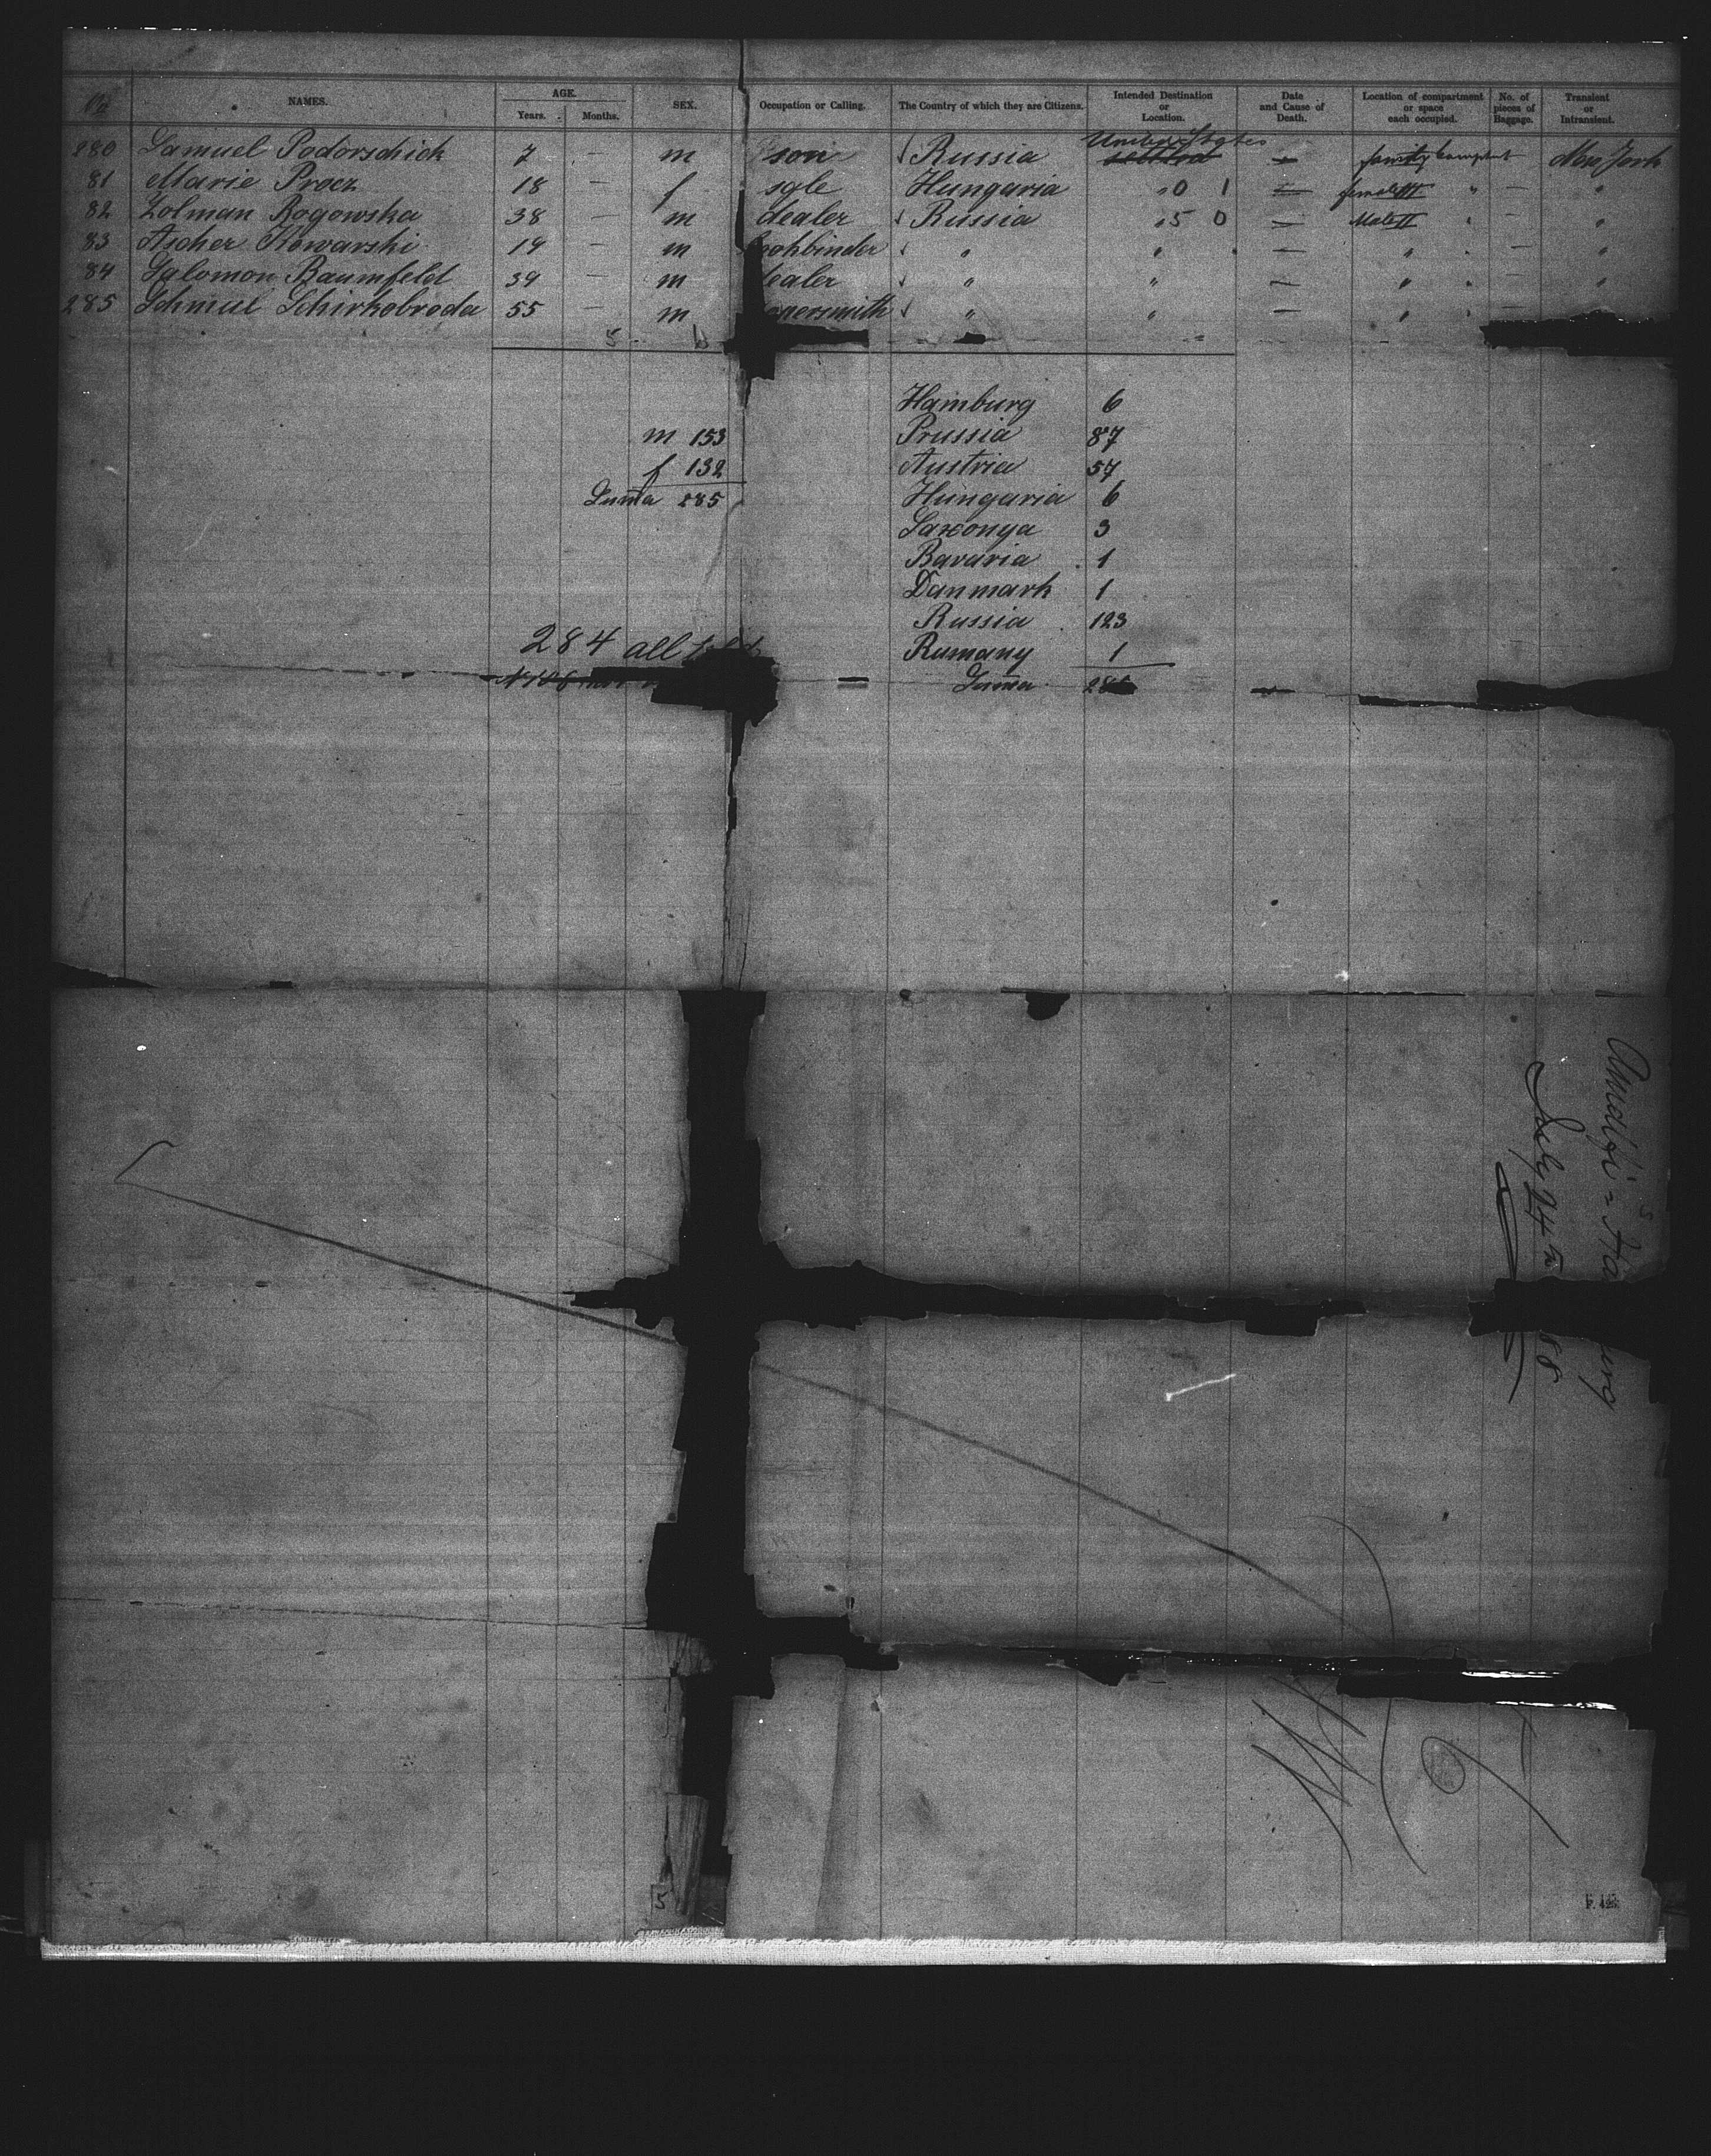 No. NAMES. AGE. Years. Months. SEX. Occupation or Calling. The Country of which they are Citizens. Intended Destination or Location. Date and Cause of Death. Location of compartment or space each occupied. No. of pieces of Baggage. Transient or Intransient.
280 Samuel Podorschick 7 — m son Russia United States — family New York
81 Marie Procz 18 — f sgle Hungaria " 0 1 — female " — "
82 Zolman Rogowska 38 — m dealer Russia " 5 0 — Male " — "
83 Ascher Kowarski 19 — m " " — " — "
84 Salomon Baumfeld 39 — m dealer " " — " — "
285 Schmul Schirkobroda 55 — m " " — " — "
Hamburg 6
m 153 Prussia 87
f 132 Austria 57
Suma 285 Hungaria 6
Saxonya 3
Bavaria 1
Danmark 1
Russia 123
284 all told Rumany 1
Suma
Amalfi = Hamburg
July 24th 88
5
F. 425